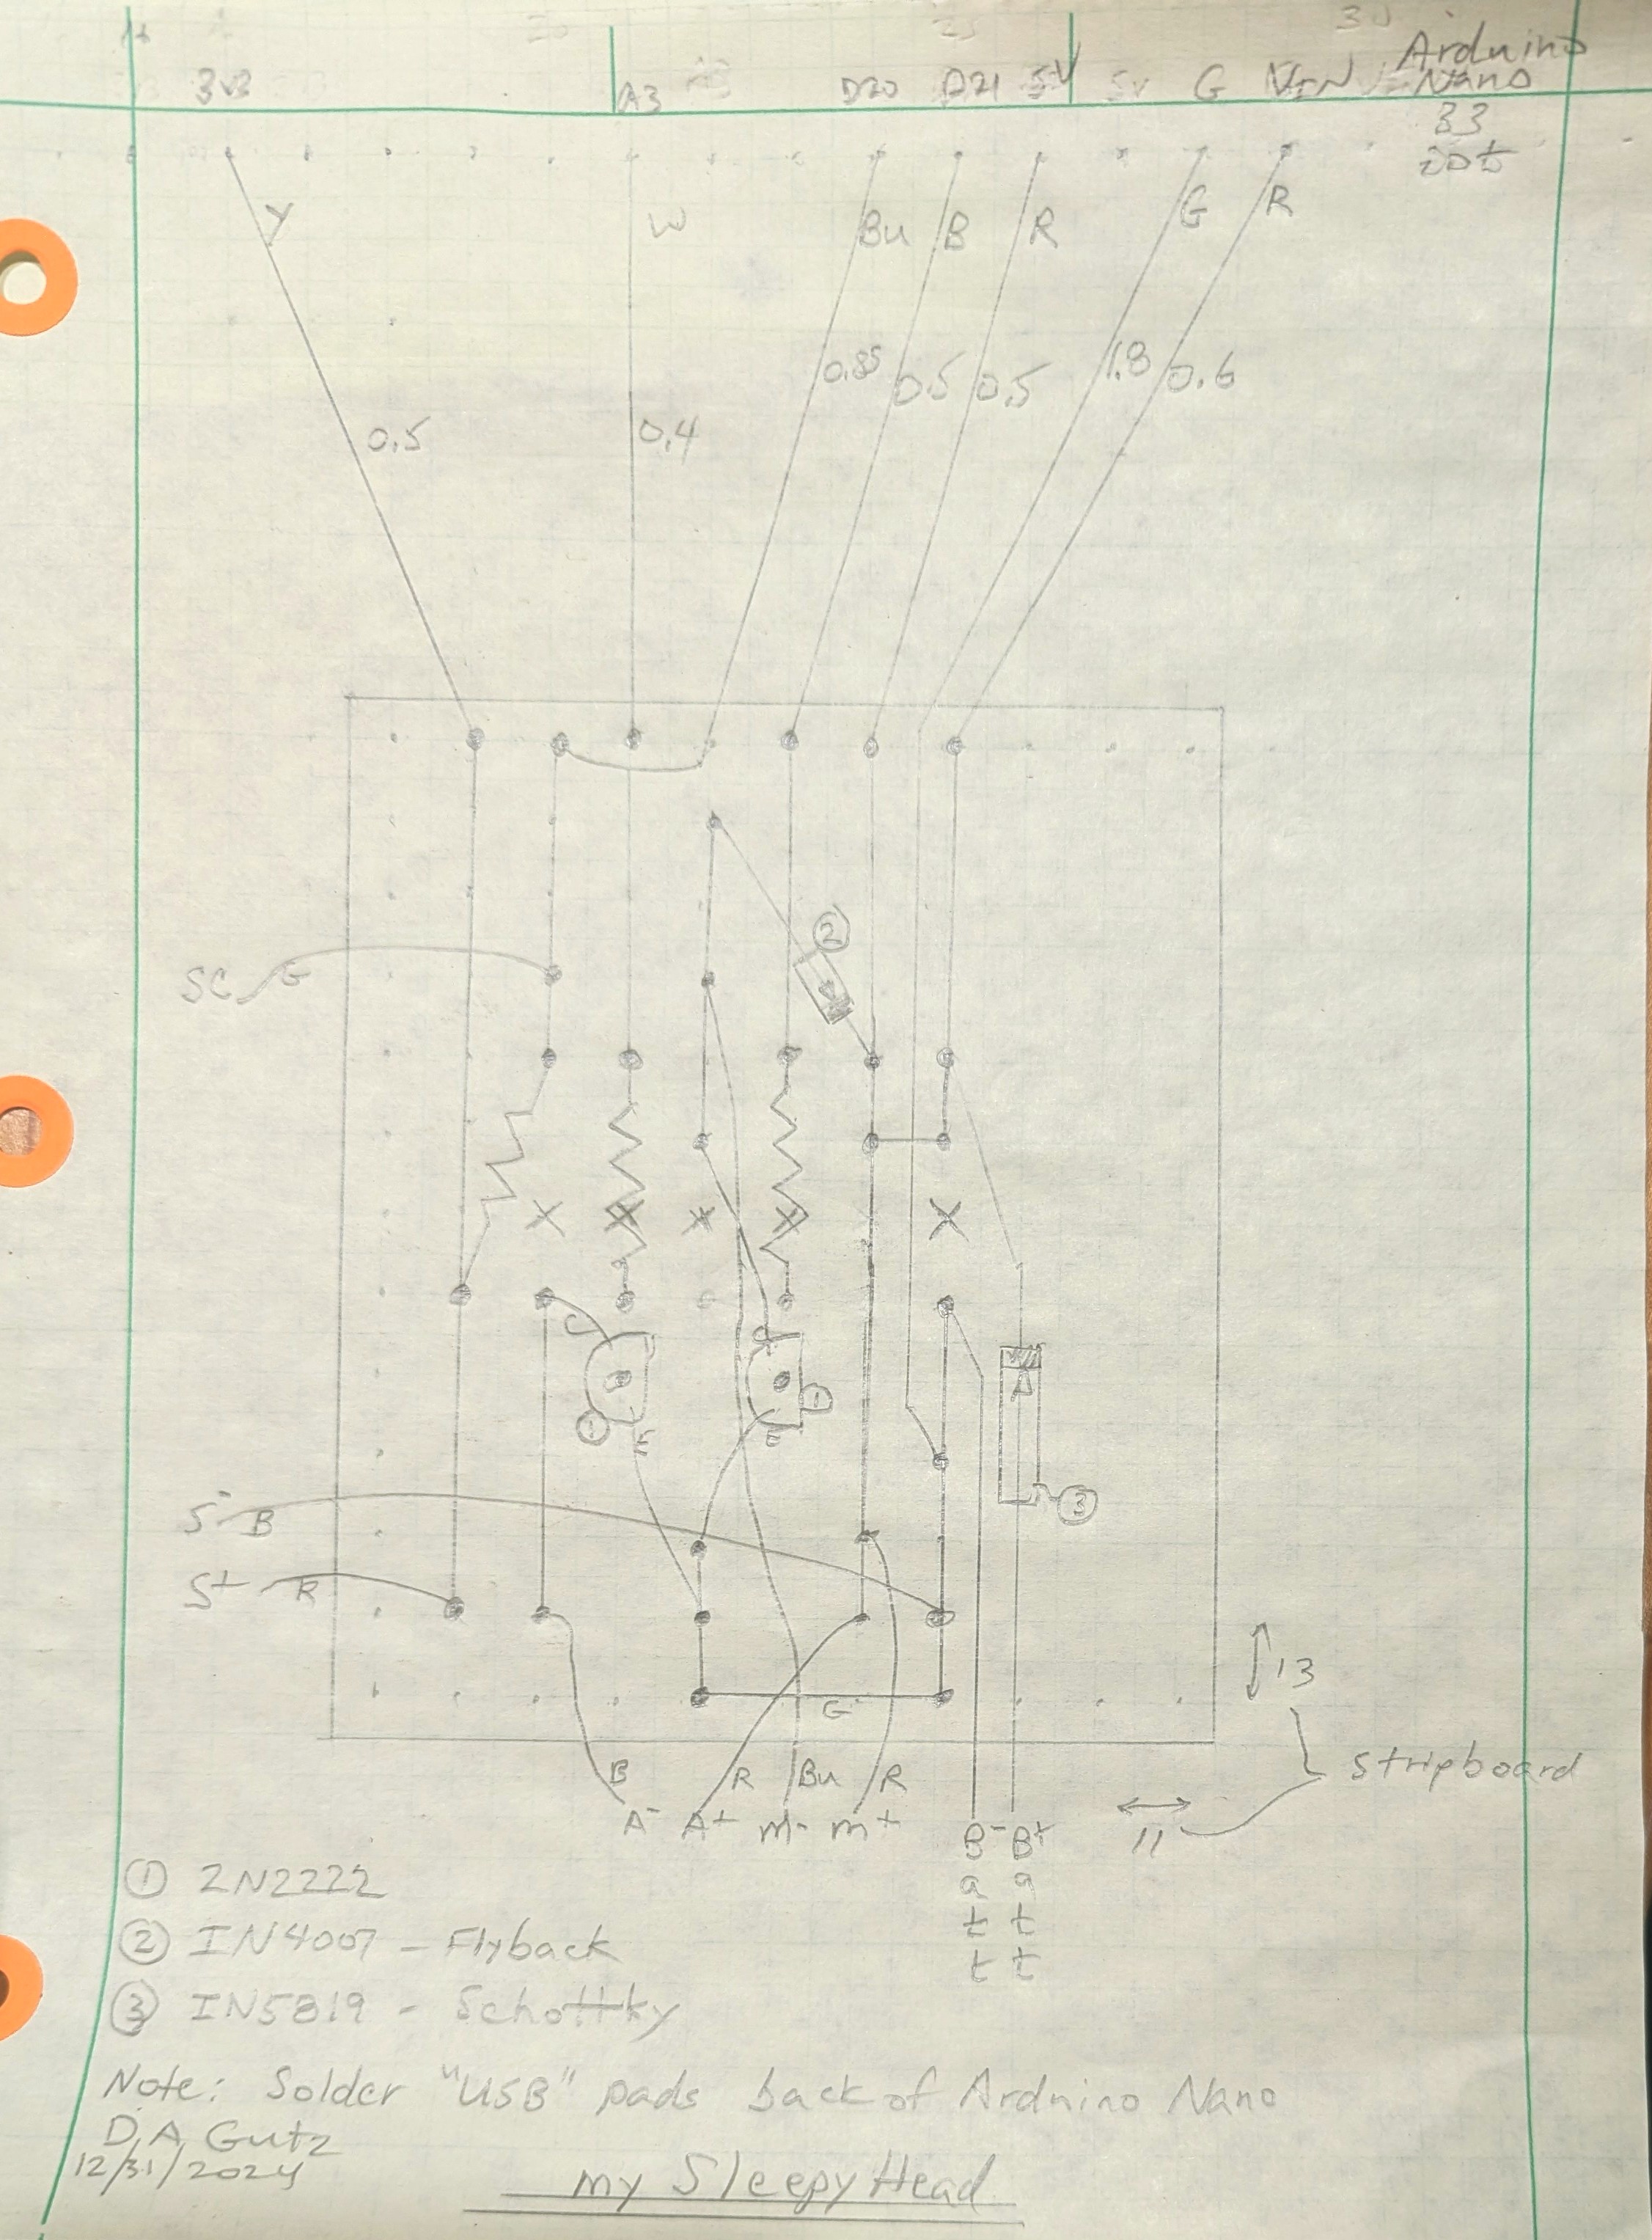 3v3 A3 D20 D21 5V 5V G VIN Arduino
Nano
33
iot
Y W Bu B R G R
0.5 0.4 0.85 0.5 0.5 1.8 0.6
2
SC G
X X X X X
C C
1 1
E E
3
S- B
S+ R
13
G
stripboard
B R Bu R
A- A+ m- m+ B- B+ 11
a a
t t
t t
① 2N2222
② IN4007 - Flyback
③ IN5819 - Schottky
Note: Solder "USB" pads back of Arduino Nano
D.A Gutz
12/31/2024
my SleepyHead